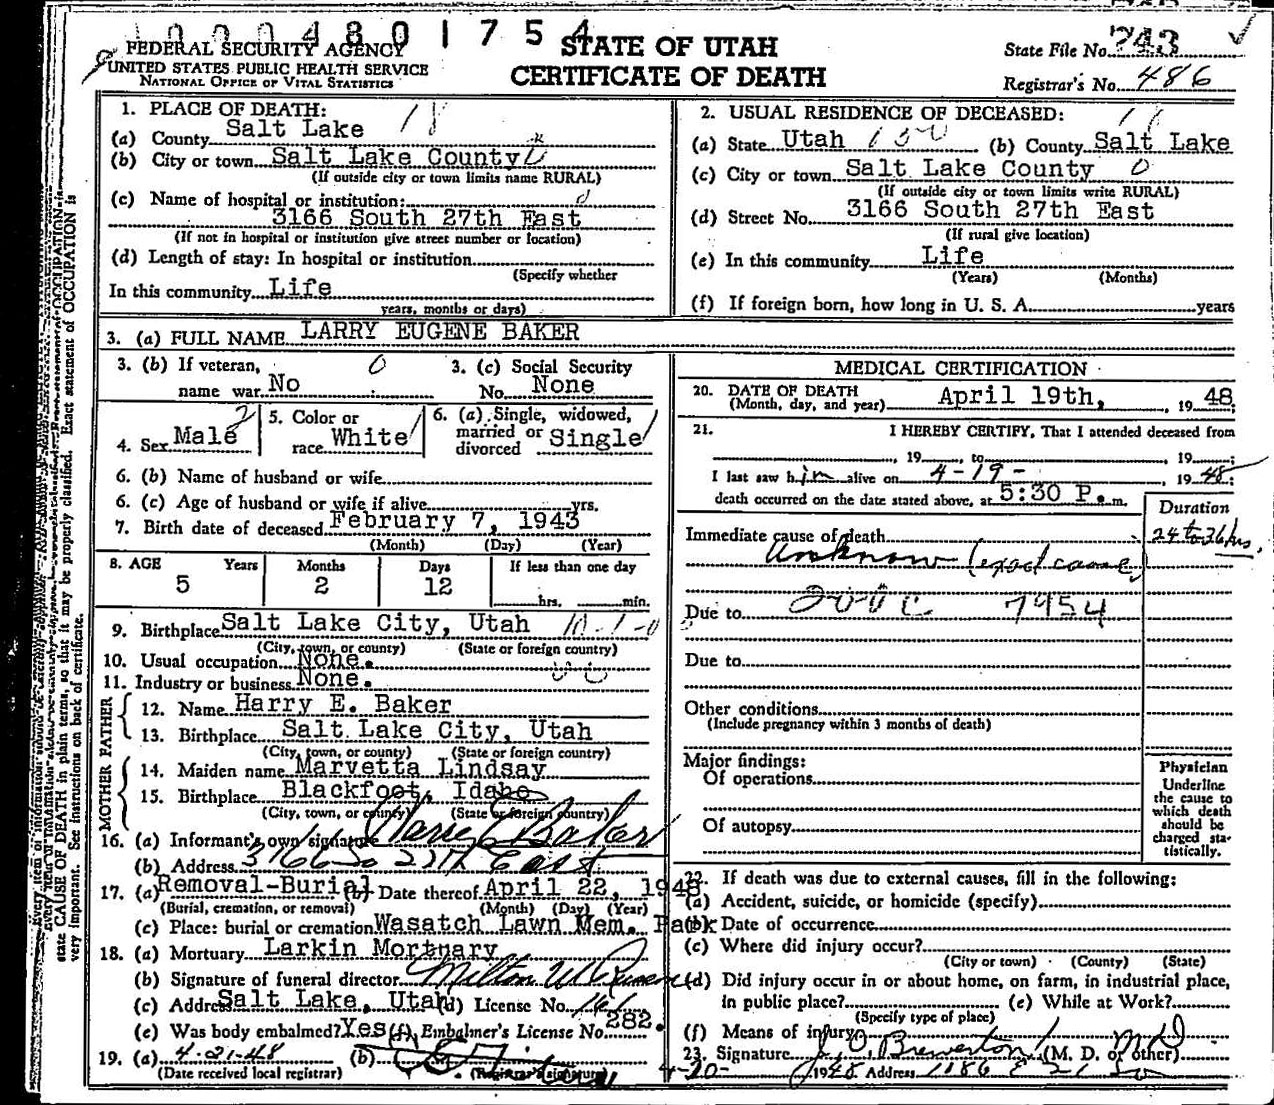 0004801754
FEDERAL SECURITY AGENCY
UNITED STATES PUBLIC HEALTH SERVICE
NATIONAL OFFICE OF VITAL STATISTICS
STATE OF UTAH
CERTIFICATE OF DEATH
State File No. 743
Registrar's No. 486
1. PLACE OF DEATH:
(a) County Salt Lake
(b) City or town Salt Lake County
(If outside city or town limits name RURAL)
(c) Name of hospital or institution:
3166 South 27th East
(If not in hospital or institution give street number or location)
(d) Length of stay: In hospital or institution
(Specify whether
In this community Life
years, months or days)
2. USUAL RESIDENCE OF DECEASED:
(a) State Utah (b) County Salt Lake
(c) City or town Salt Lake County
(If outside city or town limits write RURAL)
(d) Street No. 3166 South 27th East
(If rural give location)
(e) In this community Life
(Years) (Months)
(f) If foreign born, how long in U. S. A. years
3. (a) FULL NAME LARRY EUGENE BAKER
3. (b) If veteran, 0
name war No
3. (c) Social Security
No. None
4. Sex Male
5. Color or
race White
6. (a) Single, widowed,
married or
divorced Single
6. (b) Name of husband or wife
6. (c) Age of husband or wife if alive yrs.
7. Birth date of deceased February 7, 1943
(Month) (Day) (Year)
8. AGE Years Months Days If less than one day
5 2 12 hrs. min.
9. Birthplace Salt Lake City, Utah
(City, town, or county) (State or foreign country)
10. Usual occupation None.
11. Industry or business None.
FATHER
12. Name Harry E. Baker
13. Birthplace Salt Lake City, Utah
(City, town, or county) (State or foreign country)
MOTHER
14. Maiden name Marvetta Lindsay
15. Birthplace Blackfoot, Idaho
(City, town, or county) (State or foreign country)
16. (a) Informant's own signature Harry E Baker
(b) Address 3166 So 27th East
17. (a) Removal-Burial (b) Date thereof April 22, 1948
(Burial, cremation, or removal) (Month) (Day) (Year)
(c) Place: burial or cremation Wasatch Lawn Mem. Park
18. (a) Mortuary Larkin Mortuary
(b) Signature of funeral director Milton W
(c) Address Salt Lake, Utah (d) License No. 161
(e) Was body embalmed? Yes (f) Embalmer's License No. 282.
19. (a) 4-21-48 (b)
(Date received local registrar) (Registrar's signature)
MEDICAL CERTIFICATION
20. DATE OF DEATH
(Month, day, and year) April 19th, , 19 48
21. I HEREBY CERTIFY, That I attended deceased from
, 19 , to , 19 ;
I last saw him alive on 4-19- , 19 48;
death occurred on the date stated above, at 5:30 P. m.
Duration
Immediate cause of death 24 to 36 hrs.
Unknow (exact cause)
Due to 200C 7954
Due to
Other conditions
(Include pregnancy within 3 months of death)
Major findings:
Of operations
Of autopsy
Physician
Underline
the cause to
which death
should be
charged sta-
tistically.
22. If death was due to external causes, fill in the following:
(a) Accident, suicide, or homicide (specify)
(b) Date of occurrence
(c) Where did injury occur?
(City or town) (County) (State)
(d) Did injury occur in or about home, on farm, in industrial place,
in public place? (e) While at Work?
(Specify type of place)
(f) Means of injury
23. Signature J. O Brewerton MD (M. D. or other)
4-20- 1948 Address 1186 E 21 So
state CAUSE OF DEATH in plain terms, so that it may be properly classified. Exact statement of OCCUPATION is
very important. See instructions on back of certificate.